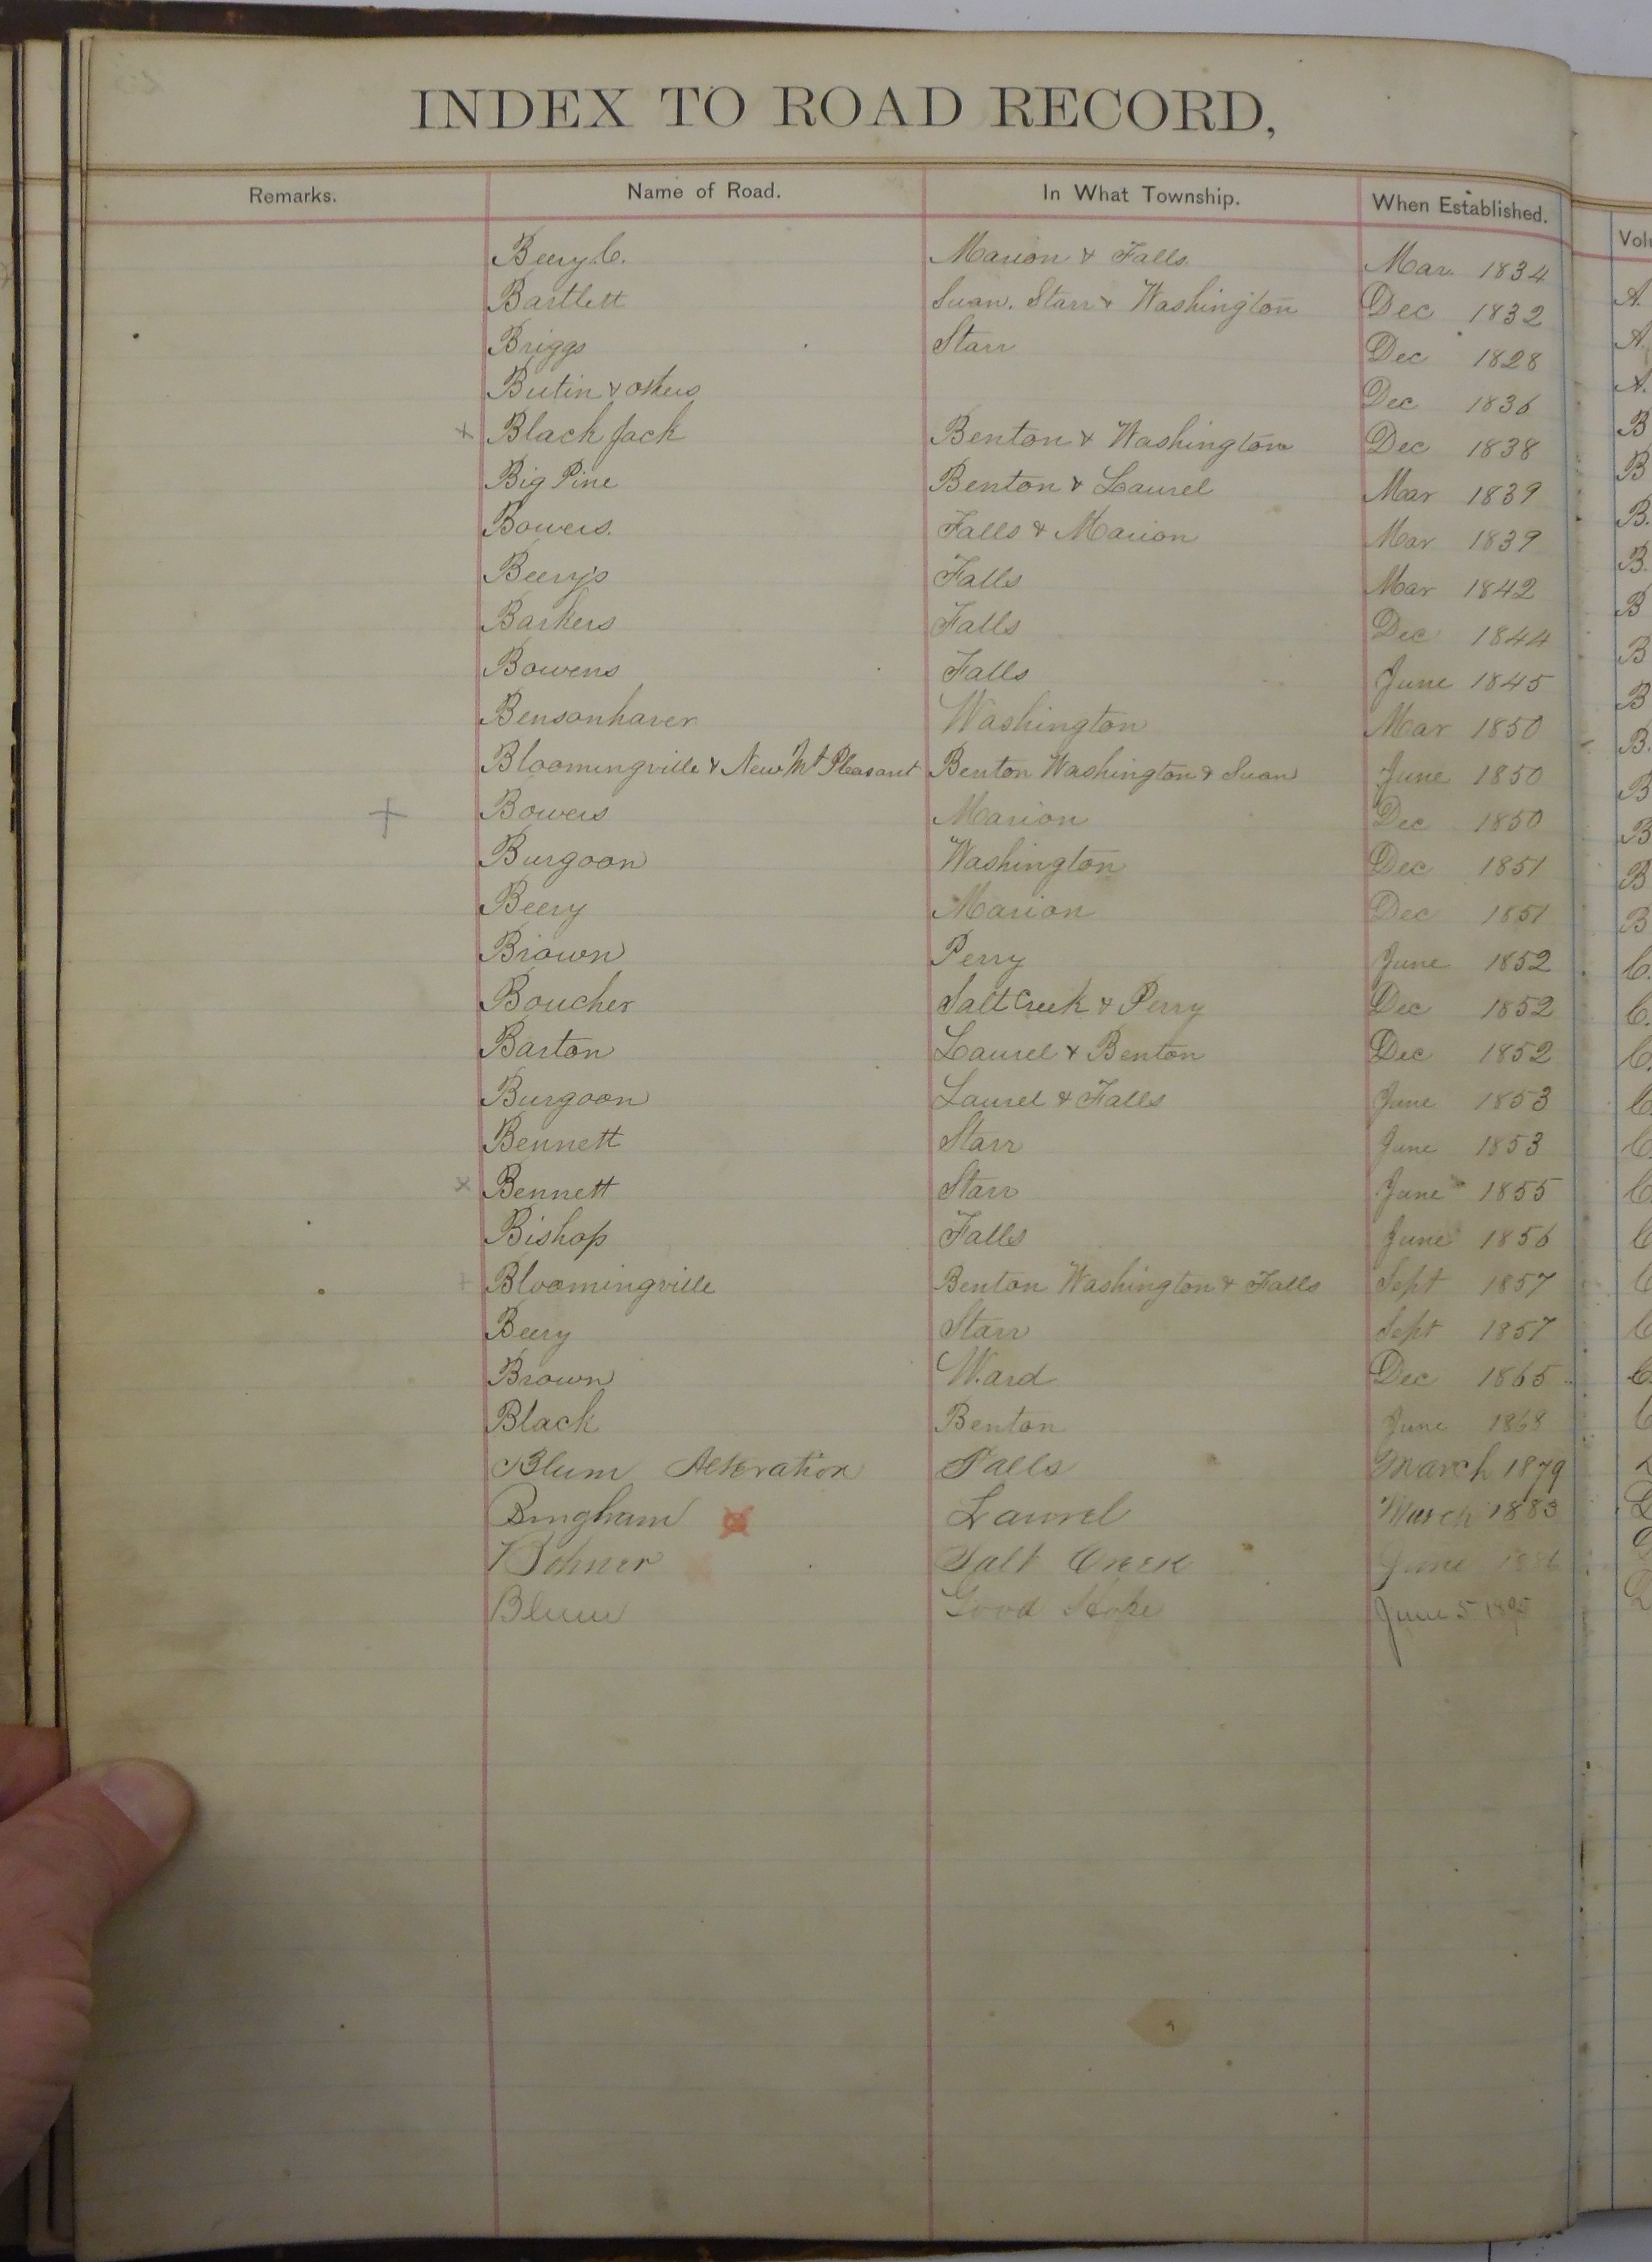 INDEX TO ROAD RECORD,
Remarks. Name of Road. In What Township. When Established.
Beery C. Marion & Falls. Mar. 1834
Bartlett Swan. Starr & Washington Dec 1832
Briggs Starr Dec 1828
Butin & others Dec 1836
x Black Jack Benton & Washington Dec 1838
Big Pine Benton & Laurel Mar 1839
Bowers. Falls & Marion Mar 1839
Beery's Falls Mar 1842
Barkers Falls Dec 1844
Bowens Falls June 1845
Bensonhaver Washington Mar 1850
Bloomingville & New Mt Pleasant Benton Washington & Swan June 1850
+ Bowers Marion Dec 1850
Burgoon Washington Dec 1851
Beery Marion Dec 1851
Brown Perry June 1852
Boucher Salt Creek & Perry Dec 1852
Barton Laurel & Benton Dec 1852
Burgoon Laurel & Falls June 1853
Bennett Starr June 1853
x Bennett Starr June 1855
Bishop Falls June 1856
+ Bloomingville Benton Washington & Falls Sept 1857
Beery Starr Sept 1857
Brown Ward Dec 1865
Black Benton June 1868
Blum Alteration Falls March 1879
Bingham Laurel March 1883
Bohner Salt Creek June 1886
Blum Good Hope June 5 1895
Volu
A.
A.
A.
B
B
B.
B.
B
B
B
B.
B
B
B
B
C.
C.
C.
C
C
C
C
C
C
C
C